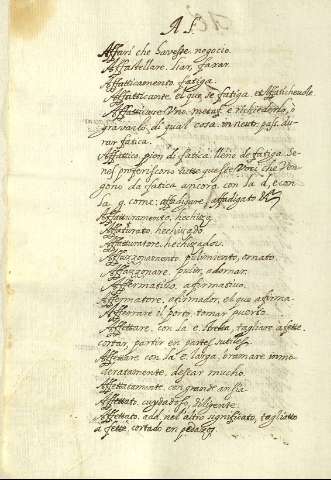 A f.
Affari che havesse negocio.
Affastellare. liar, faxar.
Affaticamento. fatiga.
Affatticante, el que se fatiga et Affatichevole
Affatticare Uno metaf. è richiederlo, ò
gravarlo di qual cosa in neut. pass. du-
rar fatica.
Affattico, pion di fatica lleno de fatiga Se
nel proferiscono tutte queste Voci che Ven-
gono da fatica ancora con la d, e con
la g. come, affadigare, affadigato
Affatturamento, hechizo
Affaturato, hechizado
Affatturatore, hechizador
Affazzonamento pulimiento, ornato
Affazzonare, pulir, adornar.
Affermativo, afirmativo.
Affermatore, afirmador, el que afirma
Afferrare il porto, tomar puerto
Affettare, con la e stretta, tagliare a fette
cortar, partir en partes sutiles
Affettare con la e larga, bramare inmo
deratamente, desear mucho
Affettatamente, con grande ansia
Affettato, cuydadoso, diligente
Affettato, add. nel altro significato, tagliato
a fette, cortado en pedazos